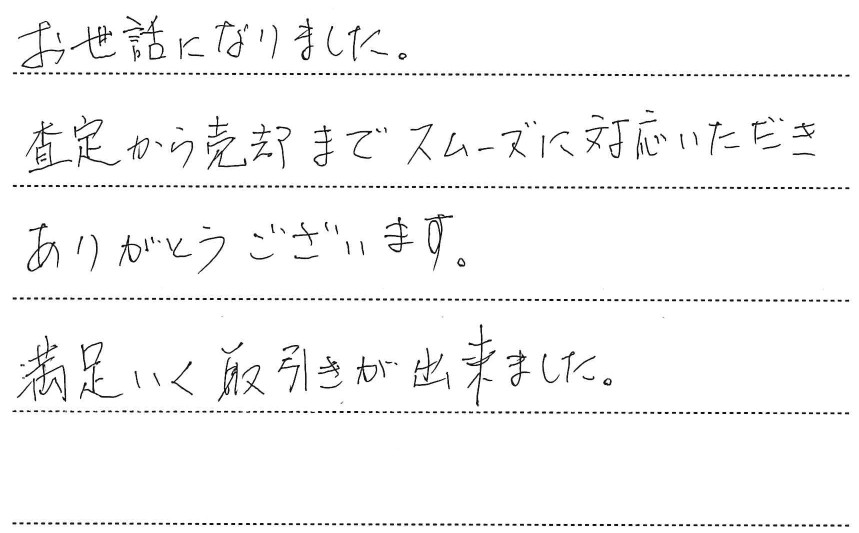 お世話になりました。
査定から売却までスムーズに対応いただき
ありがとうございます。
満足いく取引きが出来ました。